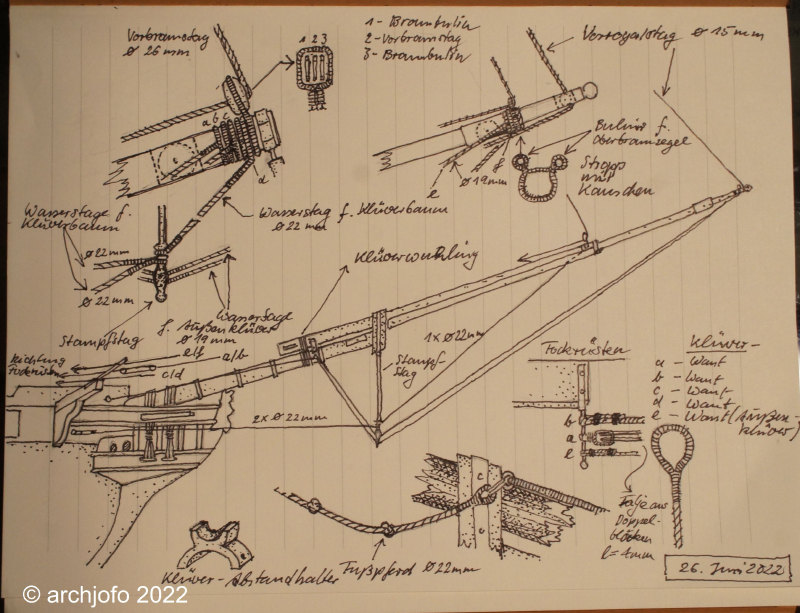 Vorbramstag
ø 26 mm
1 2 3
1 - Brambulin
2 - Vorbramstag
3 - Brambulin
Vorroyalstag ø 15 mm
a b c
d
Wasserstage f.
Klüverbaum
ø 22 mm
ø 22 mm
Wasserstag f. Klüverbaum
ø 22 mm
e
f
ø 19 mm
Bulins f.
Oberbramsegel
Stropp
mit
Kauschen
Stampfstag
Wasserstage
f. Außenklüver
ø 19 mm
Klüverwuhling
Richtung
e/f
a/b
c/d
1x ø 22 mm
Stampf-
stag
2x ø 22 mm
Foderüsten
b
a
e
Klüver-
a - Want
b - Want
c - Want
d - Want
e - Want (Außen-
klüver)
Talje aus
Doppel-
blöcken
l = 4 mm
c
Klüver-Abstandhalter
Fußpferd ø 22 mm
26. Juni 2022
© archjofo 2022